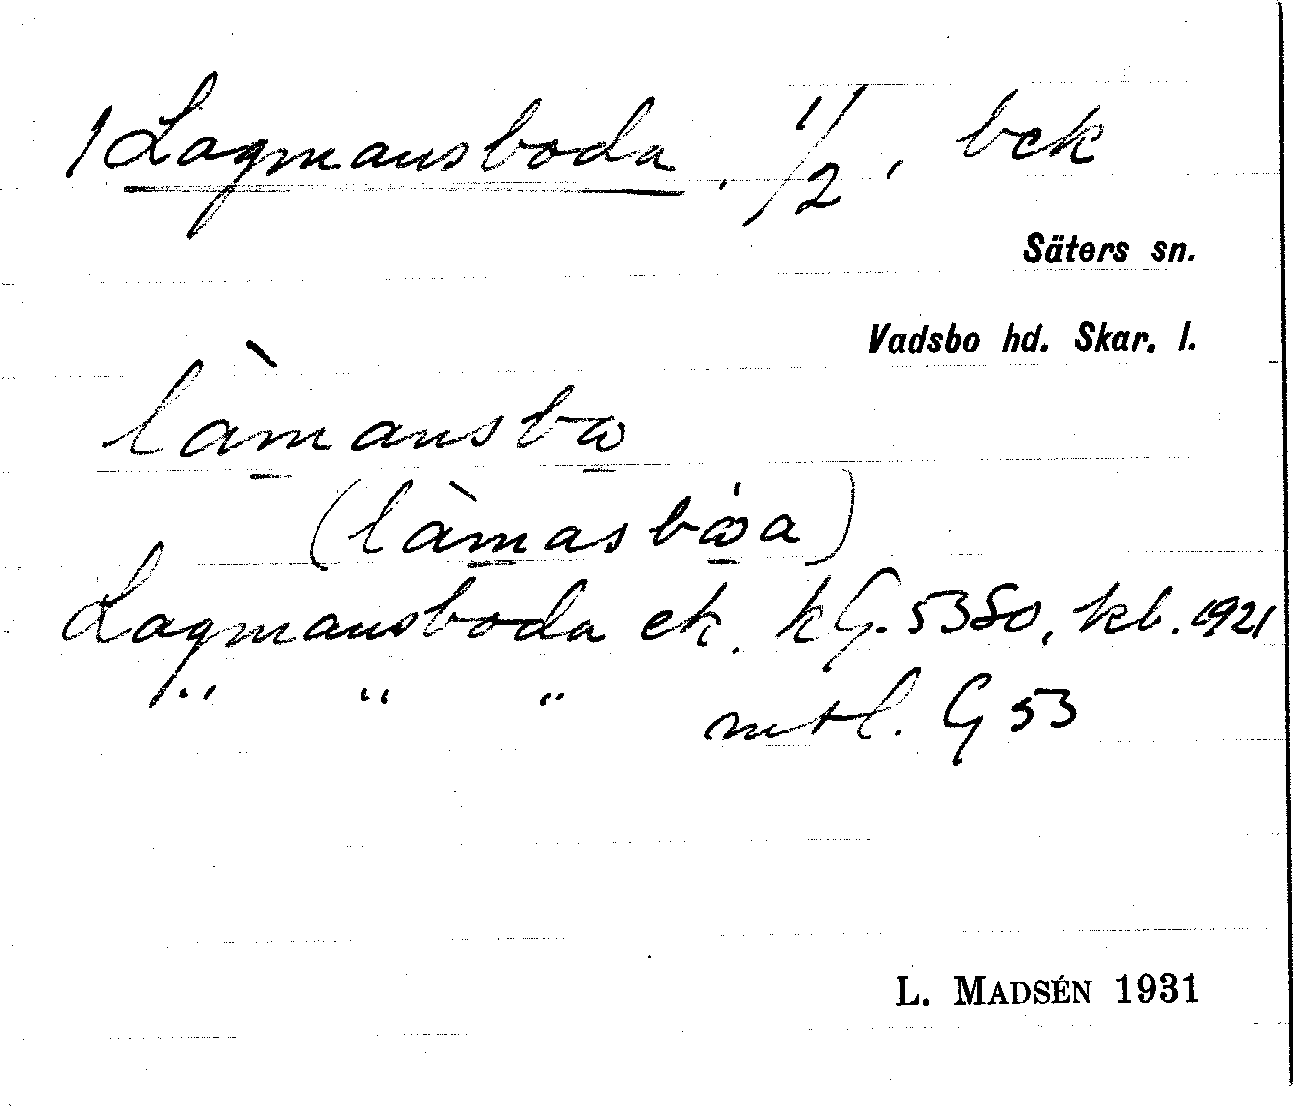 1 Lagmansboda, 1/2, bck
Säters sn.
Vadsbo hd. Skar. l.
làmansbω
(làmasbὼa)
Lagmansboda ek. kG. 5350, kb. 1921
" " " mtl. G 53
L. MADSÉN 1931